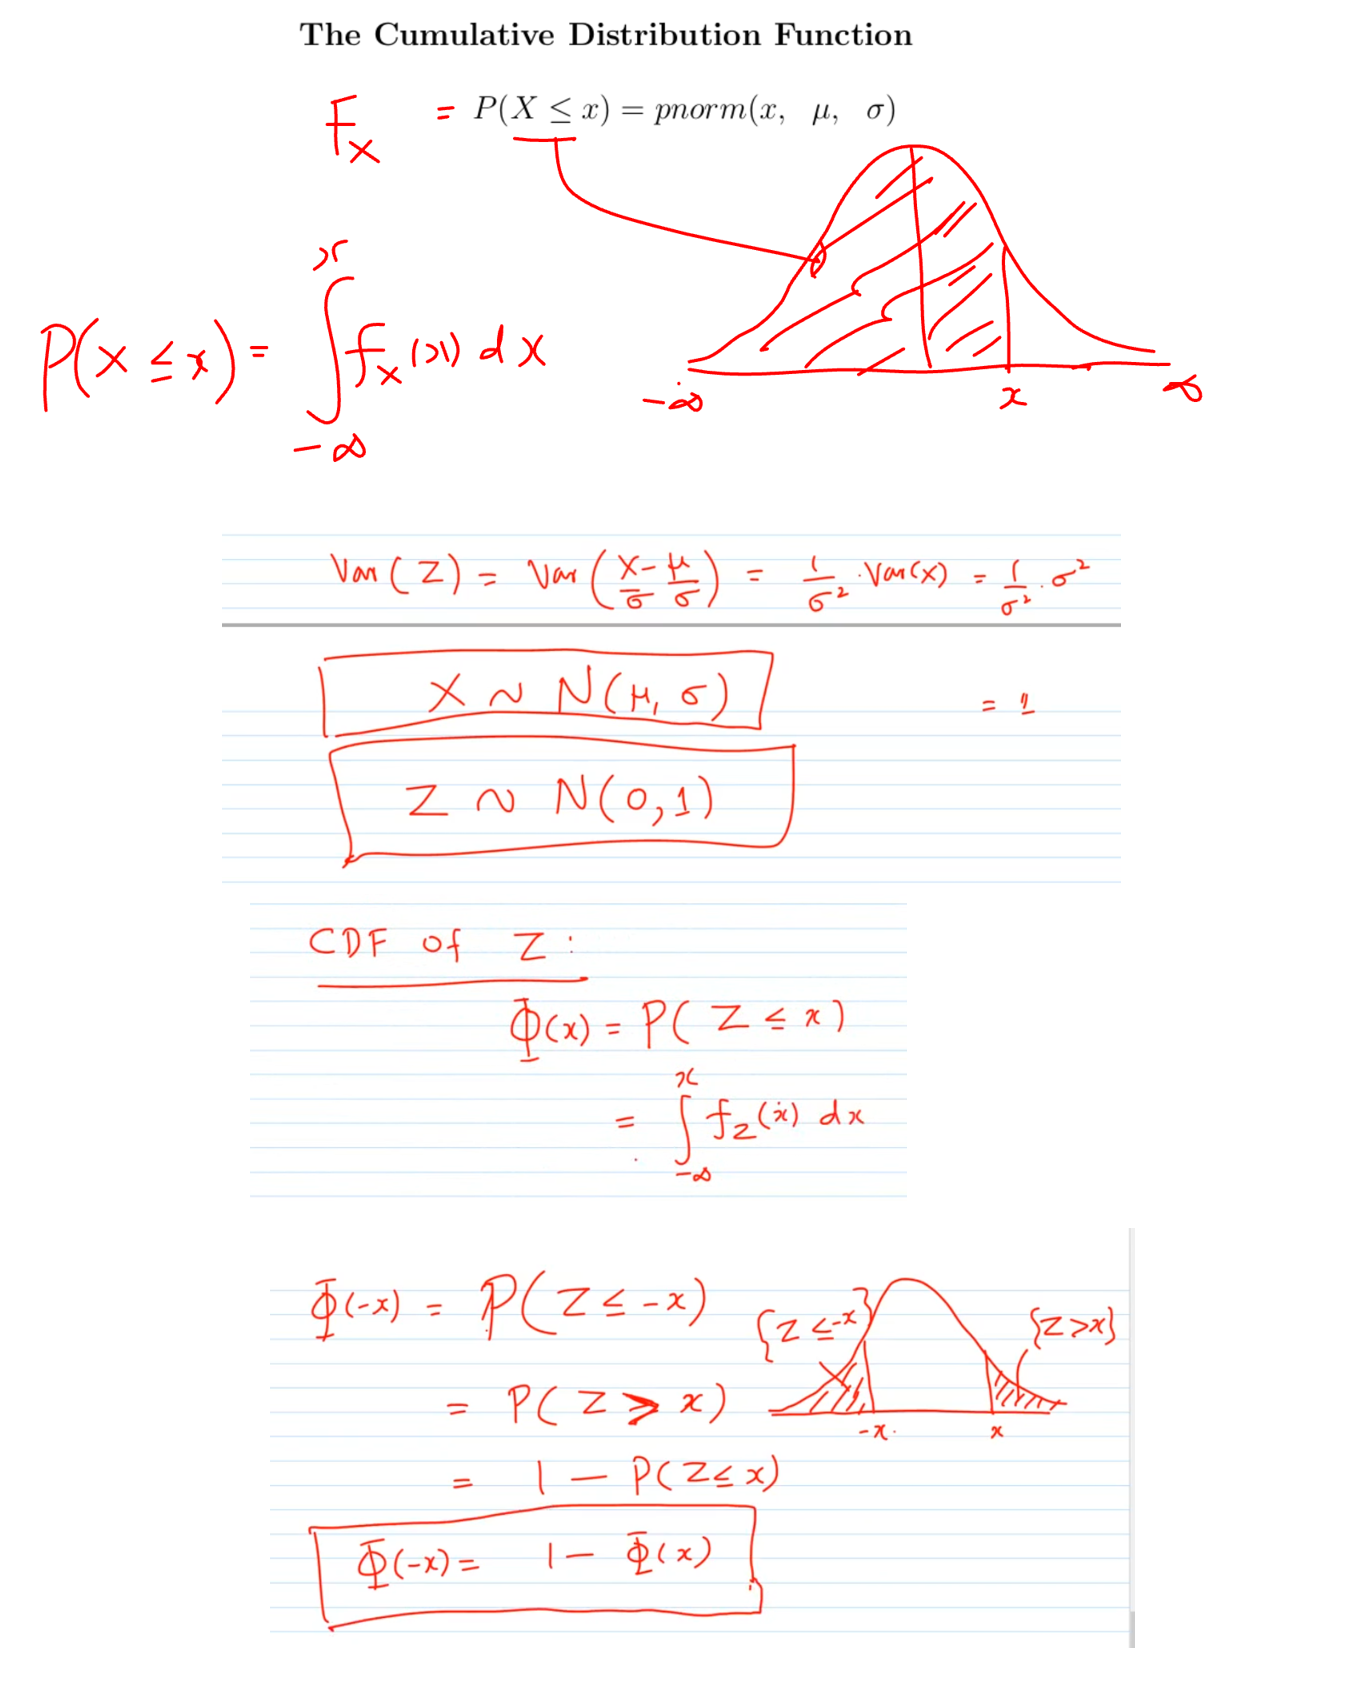 The Cumulative Distribution Function
F_X = P(X ≤ x) = pnorm(x, μ, σ)
P(X ≤ x) = ∫_{-∞}^{x} f_X(x) dx
-∞ x ∞
Var(Z) = Var(X/σ - μ/σ) = 1/σ² · Var(X) = 1/σ² · σ²
X ~ N(μ, σ)
= 1
Z ~ N(0,1)
CDF of Z:
Φ(x) = P(Z ≤ x)
= ∫_{-∞}^{x} f_Z(x) dx
Φ(-x) = P(Z ≤ -x) {Z ≤ -x} {Z > x}
= P(Z ≥ x)
-x x
= 1 - P(Z ≤ x)
Φ(-x) = 1 - Φ(x)